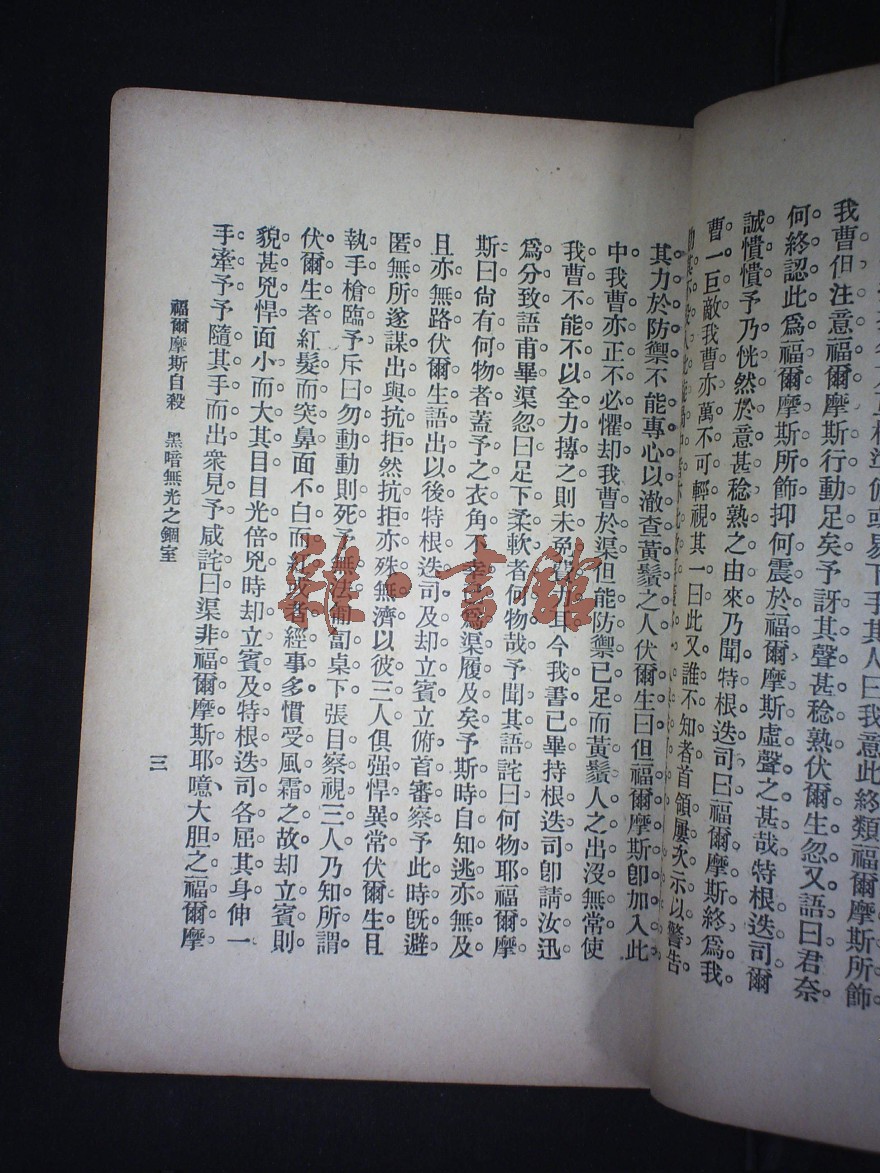 我曹但注意福爾摩斯行動足矣予訝其聲甚稔熟伏爾生忽又語曰君奈
何終認此爲福爾摩斯所飾抑何震於福爾摩斯虛聲之甚哉特根迭司爾
誠憒憒予乃恍然於意甚稔熟之由來乃聞特根迭司曰福爾摩斯終爲我
曹一巨敵我曹亦萬不可輕視其一曰此又誰不知者首領屢次示以警告
其力於防禦不能專心以澈查黃鬚之人伏爾生曰但福爾摩斯卽加入此
中我曹亦正不必懼却我曹於渠但能防禦已足而黃鬚人之出沒無常使
我曹不能不以全力摶之則未免 今我書已畢持根迭司卽請汝迅
爲分致語甫畢渠忽曰足下柔軟者何物哉予聞其語詫曰何物耶福爾摩
斯曰尙有何物者蓋予之衣角不幸 爲渠履及矣予斯時自知逃亦無及
且亦無路伏爾生語出以後特根迭司及却立賓立俯首審察予此時旣避
匿無所遂謀出與抗拒然抗拒亦殊無濟以彼三人俱强悍異常伏爾生且
執手槍臨予斥曰勿動動則死予無法匍匐桌下張目察視三人乃知所謂
伏爾生者紅髮而突鼻面不白而紅或者經事多慣受風霜之故却立賓則
貌甚兇悍面小而大其目目光倍兇時却立賓及特根迭司各屈其身伸一
手牽予予隨其手而出衆見予咸詫曰渠非福爾摩斯耶噫大胆之福爾摩
福爾摩斯自殺 黑暗無光之錮室
三
雜·書館